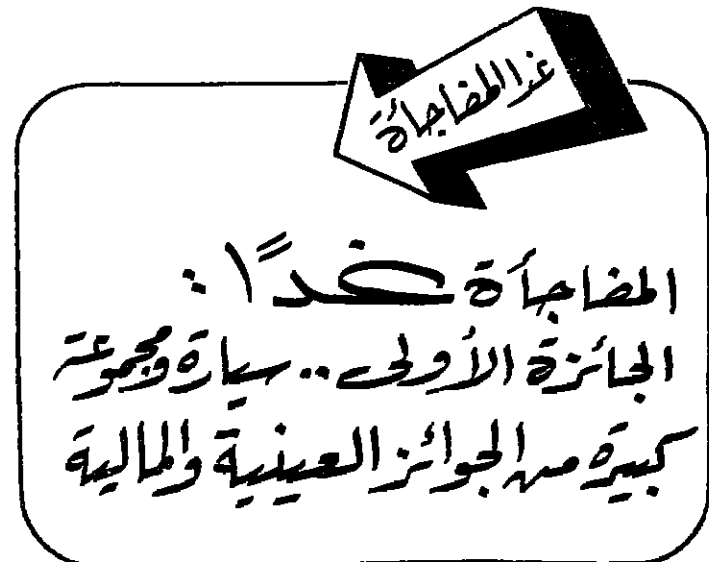 غدا المفاجأة
المفاجأة غدًا :
الجائزة الأولى .. سيارة ومجموعة
كبيرة من الجوائز العينية والمالية